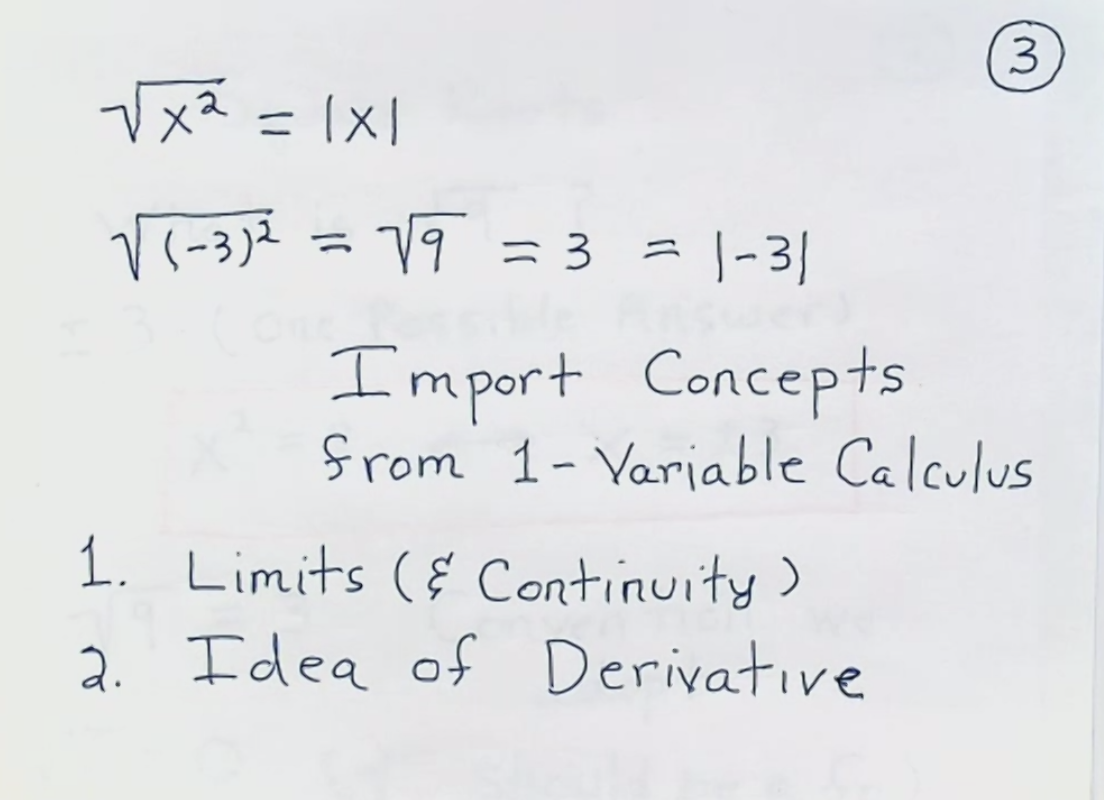 3
√x² = |x|
√(-3)² = √9 = 3 = |-3|
Import Concepts
from 1-Variable Calculus
1. Limits (& Continuity)
2. Idea of Derivative